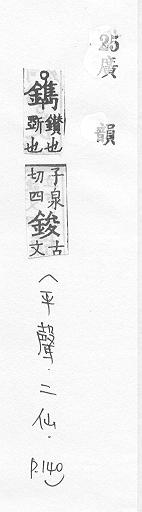 25廣韻
鐫鑽也斵也子泉切四鋑古文
(平聲.二仙.P.140)